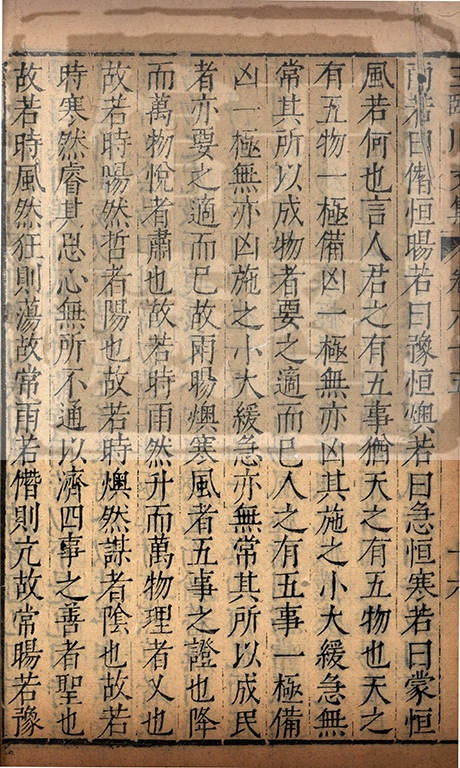 王臨川文集 卷六十五 十六
雨若曰僭恒暘若曰豫恒燠若曰急恒寒若曰蒙恒
風若何也言人君之有五事猶天之有五物也天之
有五物一極備凶一極無亦凶其施之小大緩急無
常其所以成物者要之適而已人之有五事一極備
凶一極無亦凶施之小大緩急亦無常其所以成民
者亦要之適而已故雨暘燠寒風者五事之證也降
而萬物悅者肅也故若時雨然升而萬物理者乂也
故若時暘然哲者陽也故若時燠然謀者陰也故若
時寒然睿其思心無所不通以濟四事之善者聖也
故若時風然狂則蕩故常雨若僭則亢故常暘若豫